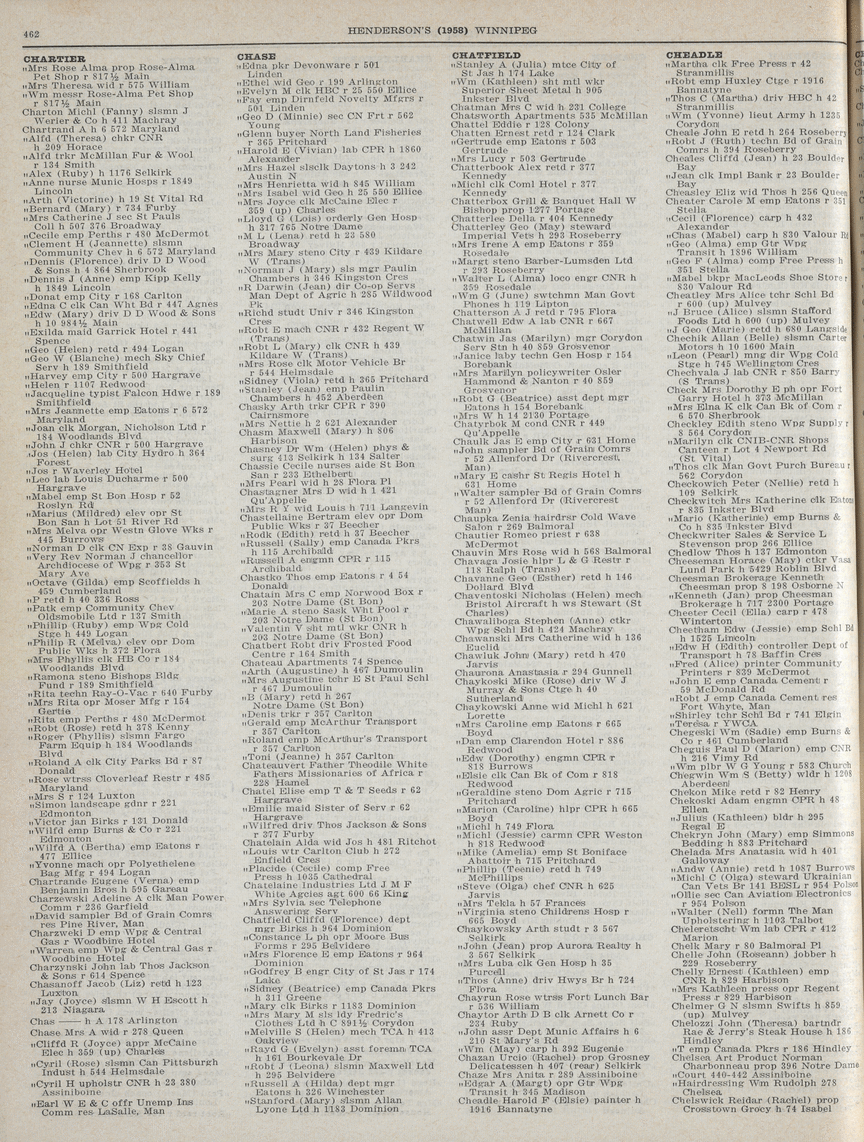 462
HENDERSON'S (1958) WINNIPEG
CHARTIER
"Mrs Rose Alma prop Rose-Alma
Pet Shop r 817½ Main
"Mrs Theresa wid r 575 William
"Wm messr Rose-Alma Pet Shop
r 817½ Main
Charton Michl (Fanny) slsmn J
Werier & Co h 411 Machray
Chartrand A h 6 572 Maryland
"Alfd (Theresa) chkr CNR
h 209 Horace
"Alfd trkr McMillan Fur & Wool
r 134 Smith
"Alex (Ruby) h 1176 Selkirk
"Anne nurse Munic Hosps r 1849
Lincoln
"Arth (Victorine) h 19 St Vital Rd
"Bernard (Mary) r 734 Furby
"Mrs Catherine J sec St Pauls
Coll h 507 376 Broadway
"Cecile emp Perths r 480 McDermot
"Clement H (Jeannette) slsmn
Community Chev h 6 572 Maryland
"Dennis (Florence) driv D D Wood
& Sons h 4 864 Sherbrook
"Dennis J (Anne) emp Kipp Kelly
h 1849 Lincoln
"Donat emp City r 168 Carlton
"Edna C clk Can Wht Bd r 447 Agnes
"Edw (Mary) driv D D Wood & Sons
h 10 984½ Main
"Exilda maid Garrick Hotel r 441
Spence
"Geo (Helen) retd r 494 Logan
"Geo W (Blanche) mech Sky Chief
Serv h 189 Smithfield
"Harvey emp City r 500 Hargrave
"Helen r 1107 Redwood
"Jacqueline typist Falcon Hdwe r 189
Smithfield
"Mrs Jeannette emp Eatons r 6 572
Maryland
"Joan clk Morgan, Nicholson Ltd r
184 Woodlands Blvd
"John J chkr CNR r 500 Hargrave
"Jos (Helen) lab City Hydro h 364
Forest
"Jos r Waverley Hotel
"Leo lab Louis Ducharme r 500
Hargrave
"Mabel emp St Bon Hosp r 52
Roslyn Rd
"Marius (Mildred) elev opr St
Bon San h Lot 51 River Rd
"Mrs Melva opr Westn Glove Wks r
445 Burrows
"Norman D clk CN Exp r 38 Gauvin
"Very Rev Norman J chancellor
Archdiocese of Wpg r 353 St
Mary Ave
"Octave (Gilda) emp Scoffields h
459 Cumberland
"P retd h 40 336 Ross
"Patk emp Community Chev
Oldsmobile Ltd r 137 Smith
"Phillip (Ruby) emp Wpg Cold
Stge h 449 Logan
"Philip R (Melva) elev opr Dom
Public Wks h 372 Flora
"Mrs Phyllis clk HB Co r 184
Woodlands Blvd
"Ramona steno Bishops Bldg
Fund r 189 Smithfield
"Rita techn Ray-O-Vac r 640 Furby
"Mrs Rita opr Moser Mfg r 154
Gertie
"Rita emp Perths r 480 McDermot
"Robt (Rose) retd h 378 Kenny
"Roger (Phyllis) slsmn Fargo
Farm Equip h 184 Woodlands
Blvd
"Roland A clk City Parks Bd r 87
Donald
"Rose wtrss Cloverleaf Restr r 485
Maryland
"Mrs S r 124 Luxton
"Simon landscape gdnr r 221
Edmonton
"Victor jan Birks r 131 Donald
"Wilfd emp Burns & Co r 221
Edmonton
"Wilfd A (Bertha) emp Eatons r
477 Ellice
"Yvonne mach opr Polyethelene
Bag Mfg r 494 Logan
Chartrande Eugene (Verna) emp
Benjamin Bros h 595 Gareau
Charzewski Adeline A clk Man Power
Comm r 236 Garfield
"David sampler Bd of Grain Comrs
res Pine River, Man
Charzweki D emp Wpg & Central
Gas r Woodbine Hotel
"Warren emp Wpg & Central Gas r
Woodbine Hotel
Charzynski John lab Thos Jackson
& Sons r 614 Spence
Chasanoff Jacob (Liz) retd h 123
Luxton
"Jay (Joyce) slsmn W H Escott h
213 Niagara
Chas —— h A 178 Arlington
Chase Mrs A wid r 278 Queen
"Cliffd R (Joyce) appr McCaine
Elec h 359 (up) Charles
"Cyril (Rose) slsmn Can Pittsburgh
Indust h 544 Helmsdale
"Cyril H upholstr CNR h 23 380
Assiniboine
"Earl W E & C offr Unemp Ins
Comm res LaSalle, Man
CHASE
"Edna pkr Devonware r 501
Linden
"Ethel wid Geo r 199 Arlington
"Evelyn M clk HBC r 25 550 Ellice
"Fay emp Dirnfeld Novelty Mfgrs r
501 Linden
"Geo D (Minnie) sec CN Frt r 562
Young
"Glenn buyer North Land Fisheries
r 365 Pritchard
"Harold E (Vivian) lab CPR h 1860
Alexander
"Mrs Hazel slsclk Daytons h 3 242
Austin N
"Mrs Henrietta wid h 845 William
"Mrs Isabel wid Geo h 25 550 Ellice
"Mrs Joyce clk McCaine Elec r
359 (up) Charles
"Lloyd G (Lois) orderly Gen Hosp
h 317 765 Notre Dame
"M L (Lena) retd h 23 580
Broadway
"Mrs Mary steno City r 439 Kildare
W (Trans)
"Norman J (Mary) sls mgr Paulin
Chambers h 346 Kingston Cres
"R Darwin (Jean) dir Co-op Servs
Man Dept of Agric h 285 Wildwood
Pk
"Richd studt Univ r 346 Kingston
Cres
"Robt E mach CNR r 432 Regent W
(Trans)
"Robt L (Mary) clk CNR h 439
Kildare W (Trans)
"Mrs Rose clk Motor Vehicle Br
r 544 Helmsdale
"Sidney (Viola) retd h 365 Pritchard
"Stanley (Jean) emp Paulin
Chambers h 452 Aberdeen
Chasky Arth trkr CPR r 390
Cairnsmore
"Mrs Nettie h 2 621 Alexander
Chasm Maxwell (Mary) h 806
Harbison
Chasney Dr Wm (Helen) phys &
surg 413 Selkirk h 134 Salter
Chassie Cecile nurses aide St Bon
San r 233 Ethelbert
"Mrs Pearl wid h 28 Flora Pl
Chastagner Mrs D wid h 1 421
Qu'Appelle
"Mrs R Y wid Louis h 711 Langevin
Chastellaine Bertram elev opr Dom
Public Wks r 37 Beecher
"Rodk (Edith) retd h 37 Beecher
"Russell (Sally) emp Canada Pkrs
h 115 Archibald
"Russell A engmn CPR r 115
Archibald
Chastko Thos emp Eatons r 4 54
Donald
Chatain Mrs C emp Norwood Box r
203 Notre Dame (St Bon)
"Marie A steno Sask Wht Pool r
203 Notre Dame (St Bon)
"Valentin V sht mtl wkr CNR h
203 Notre Dame (St Bon)
Chatbert Robt driv Frosted Food
Centre r 164 Smith
Chateau Apartments 74 Spence
"Arth (Augustine) h 467 Dumoulin
"Mrs Augustine tchr E St Paul Schl
r 467 Dumoulin
"B (Mary) retd h 267
Notre Dame (St Bon)
"Denis trkr r 357 Carlton
"Gerald emp McArthur Transport
r 357 Carlton
"Roland emp McArthur's Transport
r 357 Carlton
"Toni (Jeanne) h 357 Carlton
Chateauvert Father Theodile White
Fathers Missionaries of Africa r
228 Hamel
Chatel Elise emp T & T Seeds r 62
Hargrave
"Emilie maid Sister of Serv r 62
Hargrave
"Wilfred driv Thos Jackson & Sons
r 377 Furby
Chatelain Alda wid Jos h 481 Ritchot
"Louis wtr Carlton Club h 272
Enfield Cres
"Placide (Cecile) comp Free
Press h 1035 Cathedral
Chatelaine Industries Ltd J M F
White Agcies agt 600 66 King
"Mrs Sylvia sec Telephone
Answering Serv
Chatfield Cliffd (Florence) dept
mgr Birks h 964 Dominion
"Constance L ph opr Moore Bus
Forms r 295 Belvidere
"Mrs Florence E emp Eatons r 964
Dominion
"Godfrey B engr City of St Jas r 174
Lake
"Sidney (Beatrice) emp Canada Pkrs
h 311 Greene
"Mary clk Birks r 1183 Dominion
"Mrs Mary M sls ldy Fredric's
Clothes Ltd h C 891½ Corydon
"Melville S (Helen) mech TCA h 413
Oakview
"Rayd G (Evelyn) asst foremn TCA
h 161 Bourkevale Dr
"Robt J (Leona) slsmn Maxwell Ltd
h 295 Belvidere
"Russell A (Hilda) dept mgr
Eatons h 326 Winchester
"Stanford (Mary) slsmn Allan
Lyone Ltd h 1183 Dominion
CHATFIELD
"Stanley A (Julia) mtce City of
St Jas h 174 Lake
"Wm (Kathleen) sht mtl wkr
Superior Sheet Metal h 905
Inkster Blvd
Chatman Mrs C wid h 231 College
Chatsworth Apartments 535 McMillan
Chattel Eddie r 128 Colony
Chatten Ernest retd r 124 Clark
"Gertrude emp Eatons r 503
Gertrude
"Mrs Lucy r 503 Gertrude
Chatterbook Alex retd r 377
Kennedy
"Michl clk Coml Hotel r 377
Kennedy
Chatterbox Grill & Banquet Hall W
Bishop prop 1277 Portage
Chatterlee Della r 404 Kennedy
Chatterley Geo (May) steward
Imperial Vets h 293 Roseberry
"Mrs Irene A emp Eatons r 359
Rosedale
"Margt steno Barber-Lumsden Ltd
r 293 Roseberry
"Walter L (Alma) loco engr CNR h
359 Rosedale
"Wm G (June) swtchmn Man Govt
Phones h 119 Lipton
Chatterson A J retd r 795 Flora
Chatwell Edw A lab CNR r 667
McMillan
Chatwin Jas (Marilyn) mgr Corydon
Serv Stn h 40 859 Grosvenor
"Janice laby techn Gen Hosp r 154
Borebank
"Mrs Marilyn policywriter Osler
Hammond & Nanton r 40 859
Grosvenor
"Robt G (Beatrice) asst dept mgr
Eatons h 154 Borebank
"Mrs W h 14 2130 Portage
Chatyrbok M cond CNR r 449
Qu'Appelle
Chaulk Jas E emp City r 631 Home
"John sampler Bd of Grain Comrs
r 52 Allenford Dr (Rivercrest,
Man)
"Mary E cashr St Regis Hotel h
631 Home
"Walter sampler Bd of Grain Comrs
r 52 Allenford Dr (Rivercrest
Man)
Chaupka Zenia hairdrsr Cold Wave
Salon r 269 Balmoral
Chautier Romeo priest r 638
McDermot
Chauvin Mrs Rose wid h 568 Balmoral
Chavaga Josie hlpr L & G Restr r
118 Ralph (Trans)
Chavanne Geo (Esther) retd h 146
Dollard Blvd
Chaventoski Nicholas (Helen) mech
Bristol Aircraft h ws Stewart (St
Charles)
Chawaliboga Stephen (Anne) ctkr
Wpg Schl Bd h 424 Machray
Chawanski Mrs Catherine wid h 136
Euclid
Chawluk John (Mary) retd h 470
Jarvis
Chaurona Anastasia r 294 Gunnell
Chaykoski Mike (Rose) driv W J
Murray & Sons Ctge h 40
Sutherland
Chaykowski Anne wid Michl h 621
Lorette
"Mrs Caroline emp Eatons r 665
Boyd
"Dan emp Clarendon Hotel r 886
Redwood
"Edw (Dorothy) engmn CPR r
818 Burrows
"Elsie clk Can Bk of Com r 818
Redwood
"Geraldine steno Dom Agric r 715
Pritchard
"Marion (Caroline) hlpr CPR h 665
Boyd
"Michl h 749 Flora
"Michl (Jessie) carmn CPR Weston
h 818 Redwood
"Mike (Amelia) emp St Boniface
Abattoir h 715 Pritchard
"Phillip (Teenie) retd h 749
McPhillips
"Steve (Olga) chef CNR h 625
Jarvis
"Mrs Tekla h 57 Frances
"Virginia steno Childrens Hosp r
665 Boyd
Chaykowsky Arth studt r 3 567
Selkirk
"John (Jean) prop Aurora Realty h
3 567 Selkirk
"Mrs Luba clk Gen Hosp h 35
Purcell
"Thos (Anne) driv Hwys Br h 724
Flora
Chayrun Rose wtrss Fort Lunch Bar
r 536 William
Chaytor Arth D B clk Arnett Co r
234 Ruby
"John assr Dept Munic Affairs h 6
210 St Mary's Rd
"Wm (May) carp h 392 Eugenie
Chazan Urcio (Rachel) prop Grosney
Delicatessen h 407 (rear) Selkirk
Chaze Mrs Anita r 289 Assiniboine
"Edgar A (Margt) opr Gtr Wpg
Transit h 345 Madison
Cheadle Harold F (Elsie) painter h
1916 Bannatyne
CHEADLE
"Martha clk Free Press r 42
Stranmillis
"Robt emp Huxley Ctge r 1916
Bannatyne
"Thos C (Martha) driv HBC h 42
Stranmillis
"Wm (Yvonne) lieut Army h 1235
Corydon
Cheale John E retd h 264 Roseberry
"Robt J (Ruth) techn Bd of Grain
Comrs h 394 Roseberry
Cheales Cliffd (Jean) h 23 Boulder
Bay
"Jean clk Impl Bank r 23 Boulder
Bay
Cheasley Eliz wid Thos h 256 Queen
Cheater Carole M emp Eatons r 351
Stella
"Cecil (Florence) carp h 432
Alexander
"Chas (Mabel) carp h 830 Valour Rd
"Geo (Alma) emp Gtr Wpg
Transit h 1896 William
"Geo F (Alma) comp Free Press h
351 Stella
"Mabel bkpr MacLeods Shoe Store r
830 Valour Rd
Cheatley Mrs Alice tchr Schl Bd
r 600 (up) Mulvey
"J Bruce (Alice) slsmn Stafford
Foods Ltd h 600 (up) Mulvey
"J Geo (Marie) retd h 680 Langside
Chechik Allan (Belle) slsmn Carter
Motors h 10 1600 Main
"Leon (Pearl) mng dir Wpg Cold
Stge h 745 Wellington Cres
Chechvala J lab CNR r 850 Barry
(S Trans)
Check Mrs Dorothy E ph opr Fort
Garry Hotel h 373 McMillan
"Mrs Elna K clk Can Bk of Com r
6 570 Sherbrook
Checkley Edith steno Wpg Supply r
8 564 Corydon
"Marilyn clk CNIB-CNR Shops
Canteen r Lot 4 Newport Rd
(St Vital)
"Thos clk Man Govt Purch Bureau r
562 Corydon
Checkowich Peter (Nellie) retd h
109 Selkirk
Checkwitch Mrs Katherine clk Eatons
r 835 Inkster Blvd
"Mario (Katherine) emp Burns &
Co h 835 Inkster Blvd
Checkwriter Sales & Service L
Stevenson prop 266 Ellice
Chedlow Thos h 137 Edmonton
Cheeseman Horace (May) ctkr Vasa
Lund Park h 5429 Roblin Blvd
Cheesman Brokerage Kenneth
Cheesman prop 8 198 Osborne N
"Kenneth (Jan) prop Cheesman
Brokerage h 717 2300 Portage
Cheeter Cecil (Ella) carp r 478
Winterton
Cheetham Edw (Jessie) emp Schl Bd
h 1525 Lincoln
"Edw H (Edith) controller Dept of
Transport h 78 Baffin Cres
"Fred (Alice) printer Community
Printers r 839 McDermot
"John E emp Canada Cement r
59 McDonald Rd
"Robt J emp Canada Cement res
Fort Whyte, Man
"Shirley tchr Schl Bd r 741 Elgin
"Teresa r YWCA
Chegeski Wm (Sadie) emp Burns &
Co r 461 Cumberland
Cheguis Paul D (Marion) emp CNR
h 216 Vimy Rd
"Wm plbr W G Young r 583 Church
Chegwin Wm S (Betty) wldr h 1208
Aberdeen
Chekon Mike retd r 82 Henry
Chekoski Adam engmn CPR h 48
Ellen
"Julius (Kathleen) bldr h 295
Regal E
Chekryn John (Mary) emp Simmons
Bedding h 883 Pritchard
Chelada Mrs Anatasia wid h 401
Galloway
"Andw (Annie) retd h 1087 Burrows
"Michl C (Olga) steward Ukrainian
Can Vets Br 141 BESL r 954 Polson
"Ollie sec Can Aviation Electronics
r 954 Polson
"Walter (Nell) formn The Man
Upholstering h 1103 Talbot
Cheleretscht Wm lab CPR r 412
Marion
Chelk Mary r 80 Balmoral Pl
Chelle John (Roseann) jobber h
229 Roseberry
Chelly Ernest (Kathleen) emp
CNR h 829 Harbison
"Mrs Kathleen press opr Regent
Press r 829 Harbison
Chelmer G N slsmn Swifts h 859
(up) Mulvey
Chelozzi John (Theresa) bartndr
Rae & Jerry's Steak House h 186
Hindley
"T emp Canada Pkrs r 186 Hindley
Chelsea Art Product Norman
Charbonneau prop 396 Notre Dame
"Court 440-442 Assiniboine
"Hairdressing Wm Rudolph 278
Chelsea
Chelswick Reidar (Rachel) prop
Crosstown Grocy h 74 Isabel